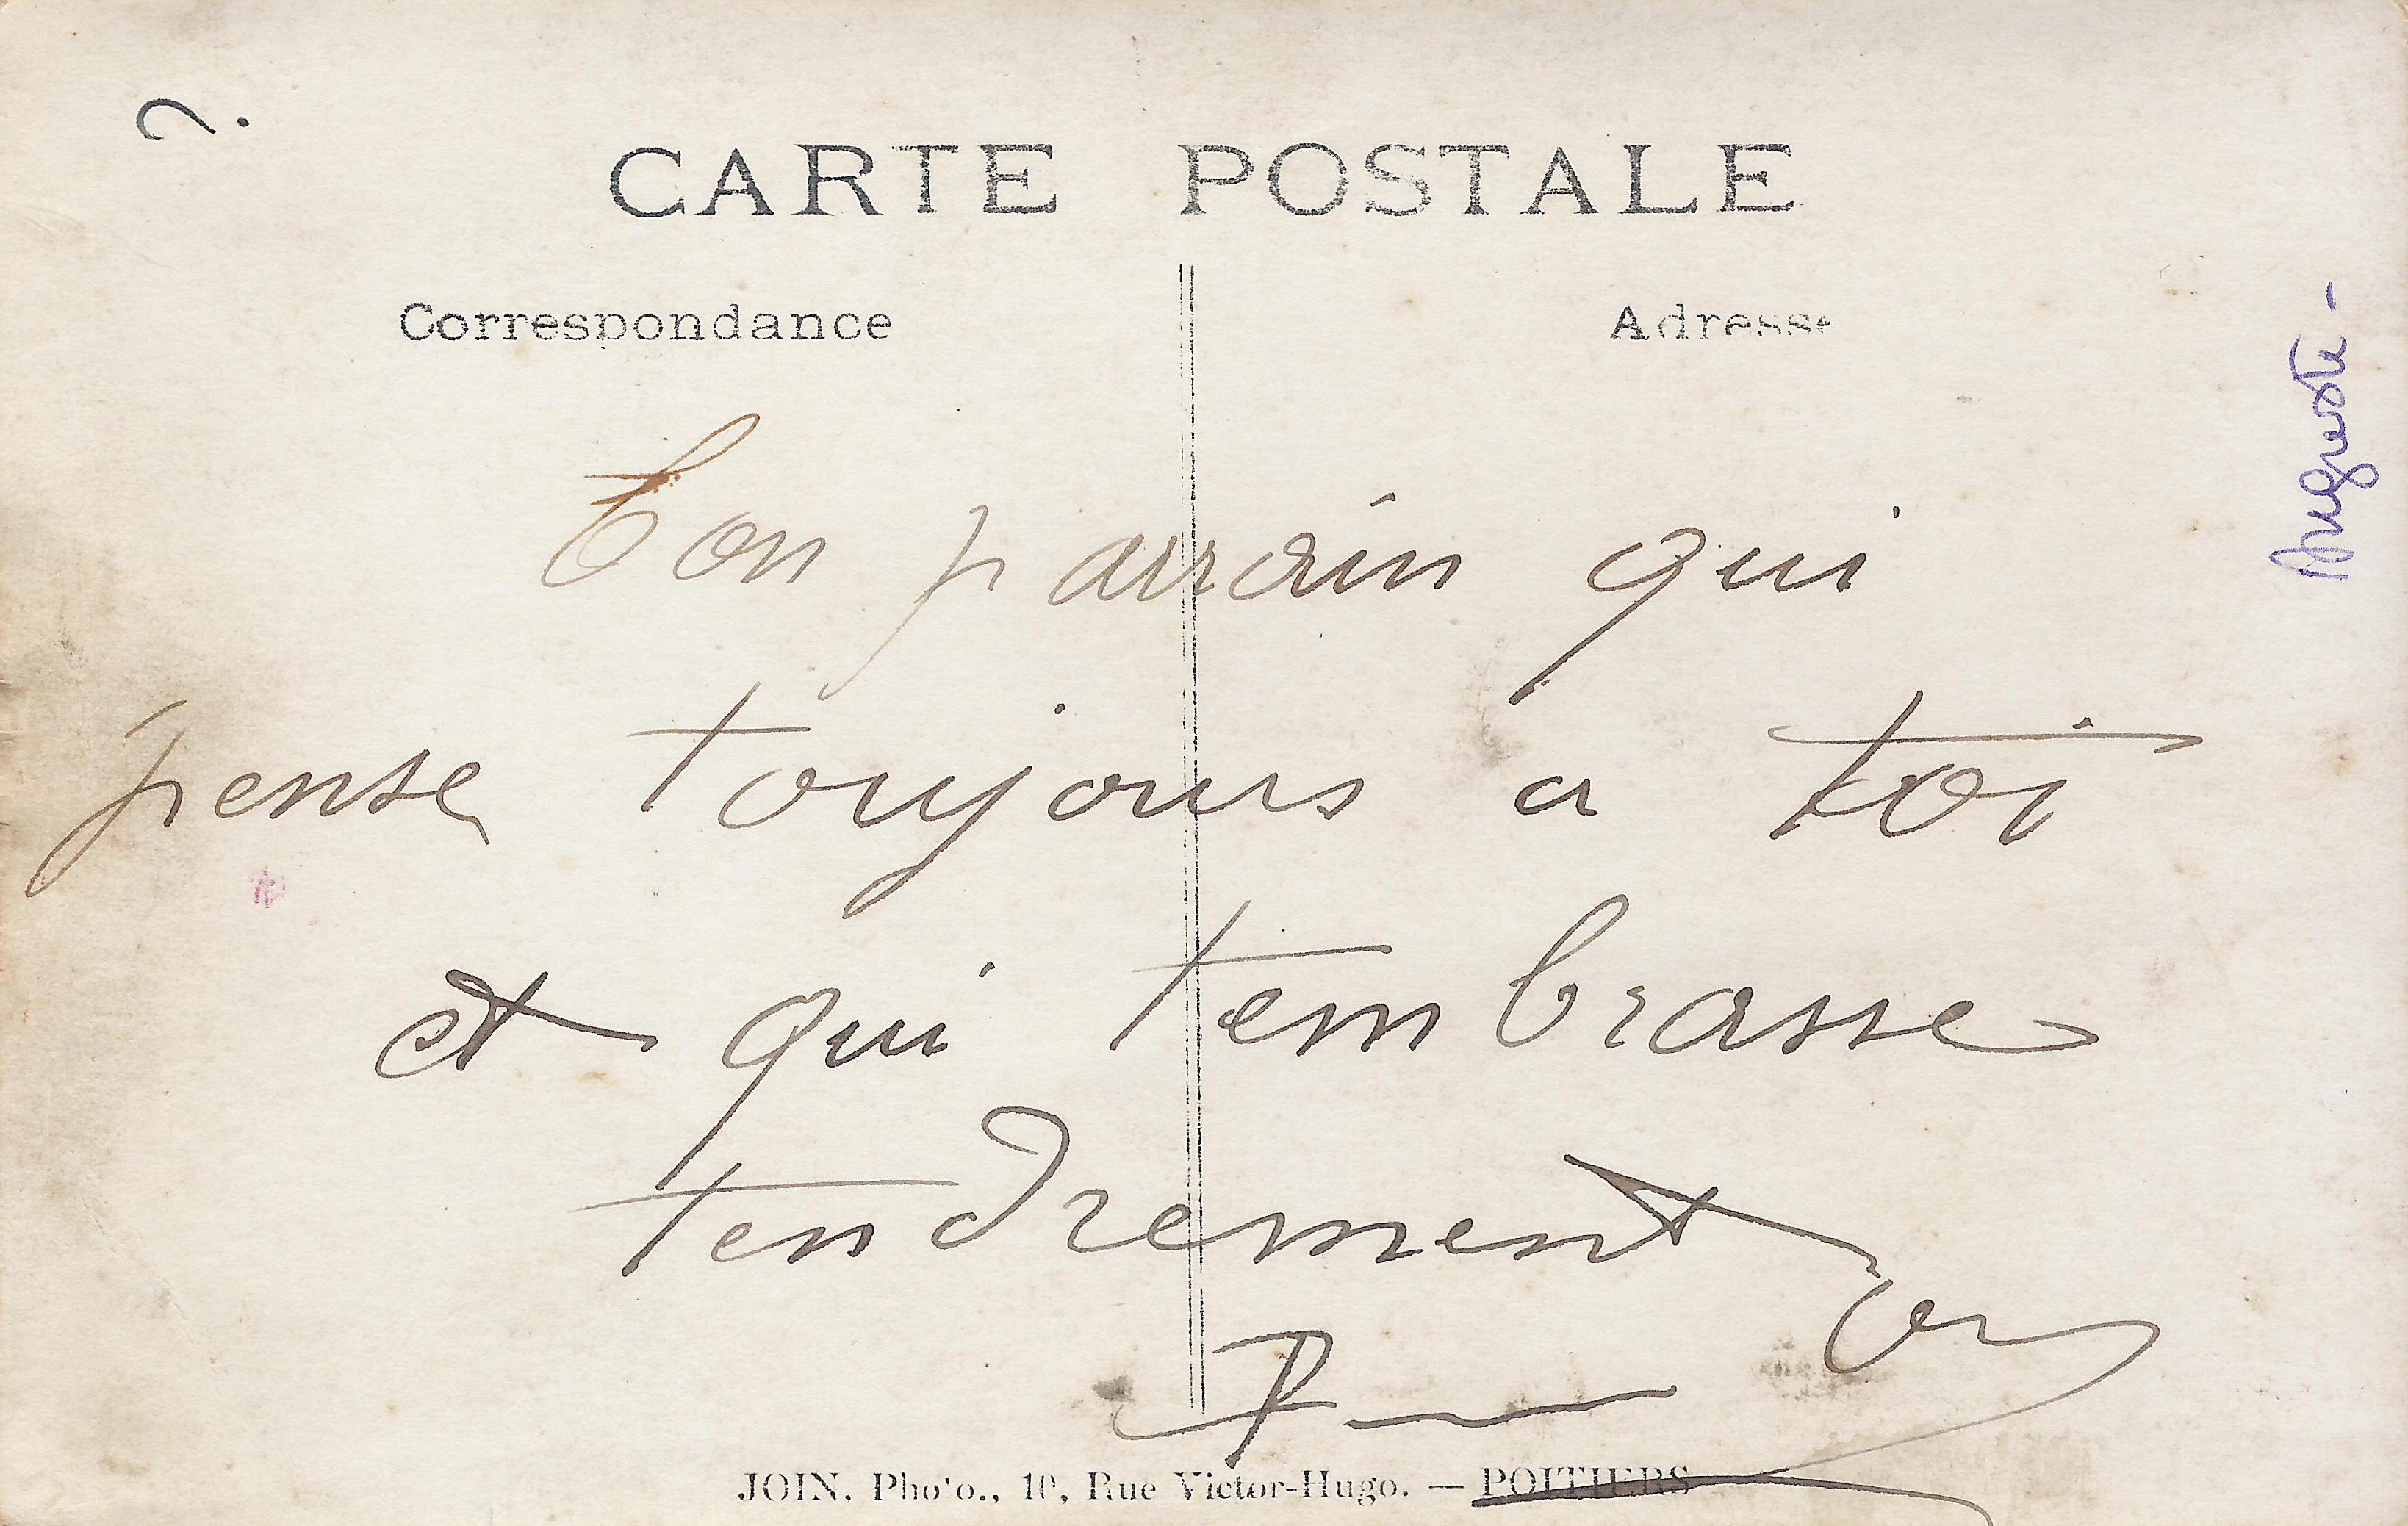 ?
CARTE POSTALE
Correspondance
Adresse
Ton parrain qui
pense toujours a toi
et qui tembrasse
tendrement
JOIN, Photo., 10, Rue Victor-Hugo. — POITIERS
Auguste -